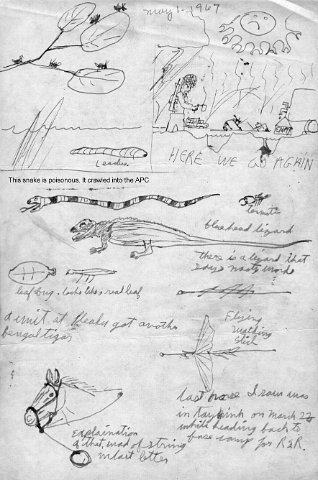 May 1 - 1967
Leaches
HERE WE GO AGAIN
This snake is poisonous. It crawled into the APC
termite
blue head lizard
there is a lizard that
says nasty words
leaf bug - looks like a real leaf
Flying
walking
stick
a unit at Pleaks got another
bengal tiger
last horse I saw was
in Ray Kinh on March 22
while heading back to
base camp for R&R.
explaination
of that wad of string
in last letter